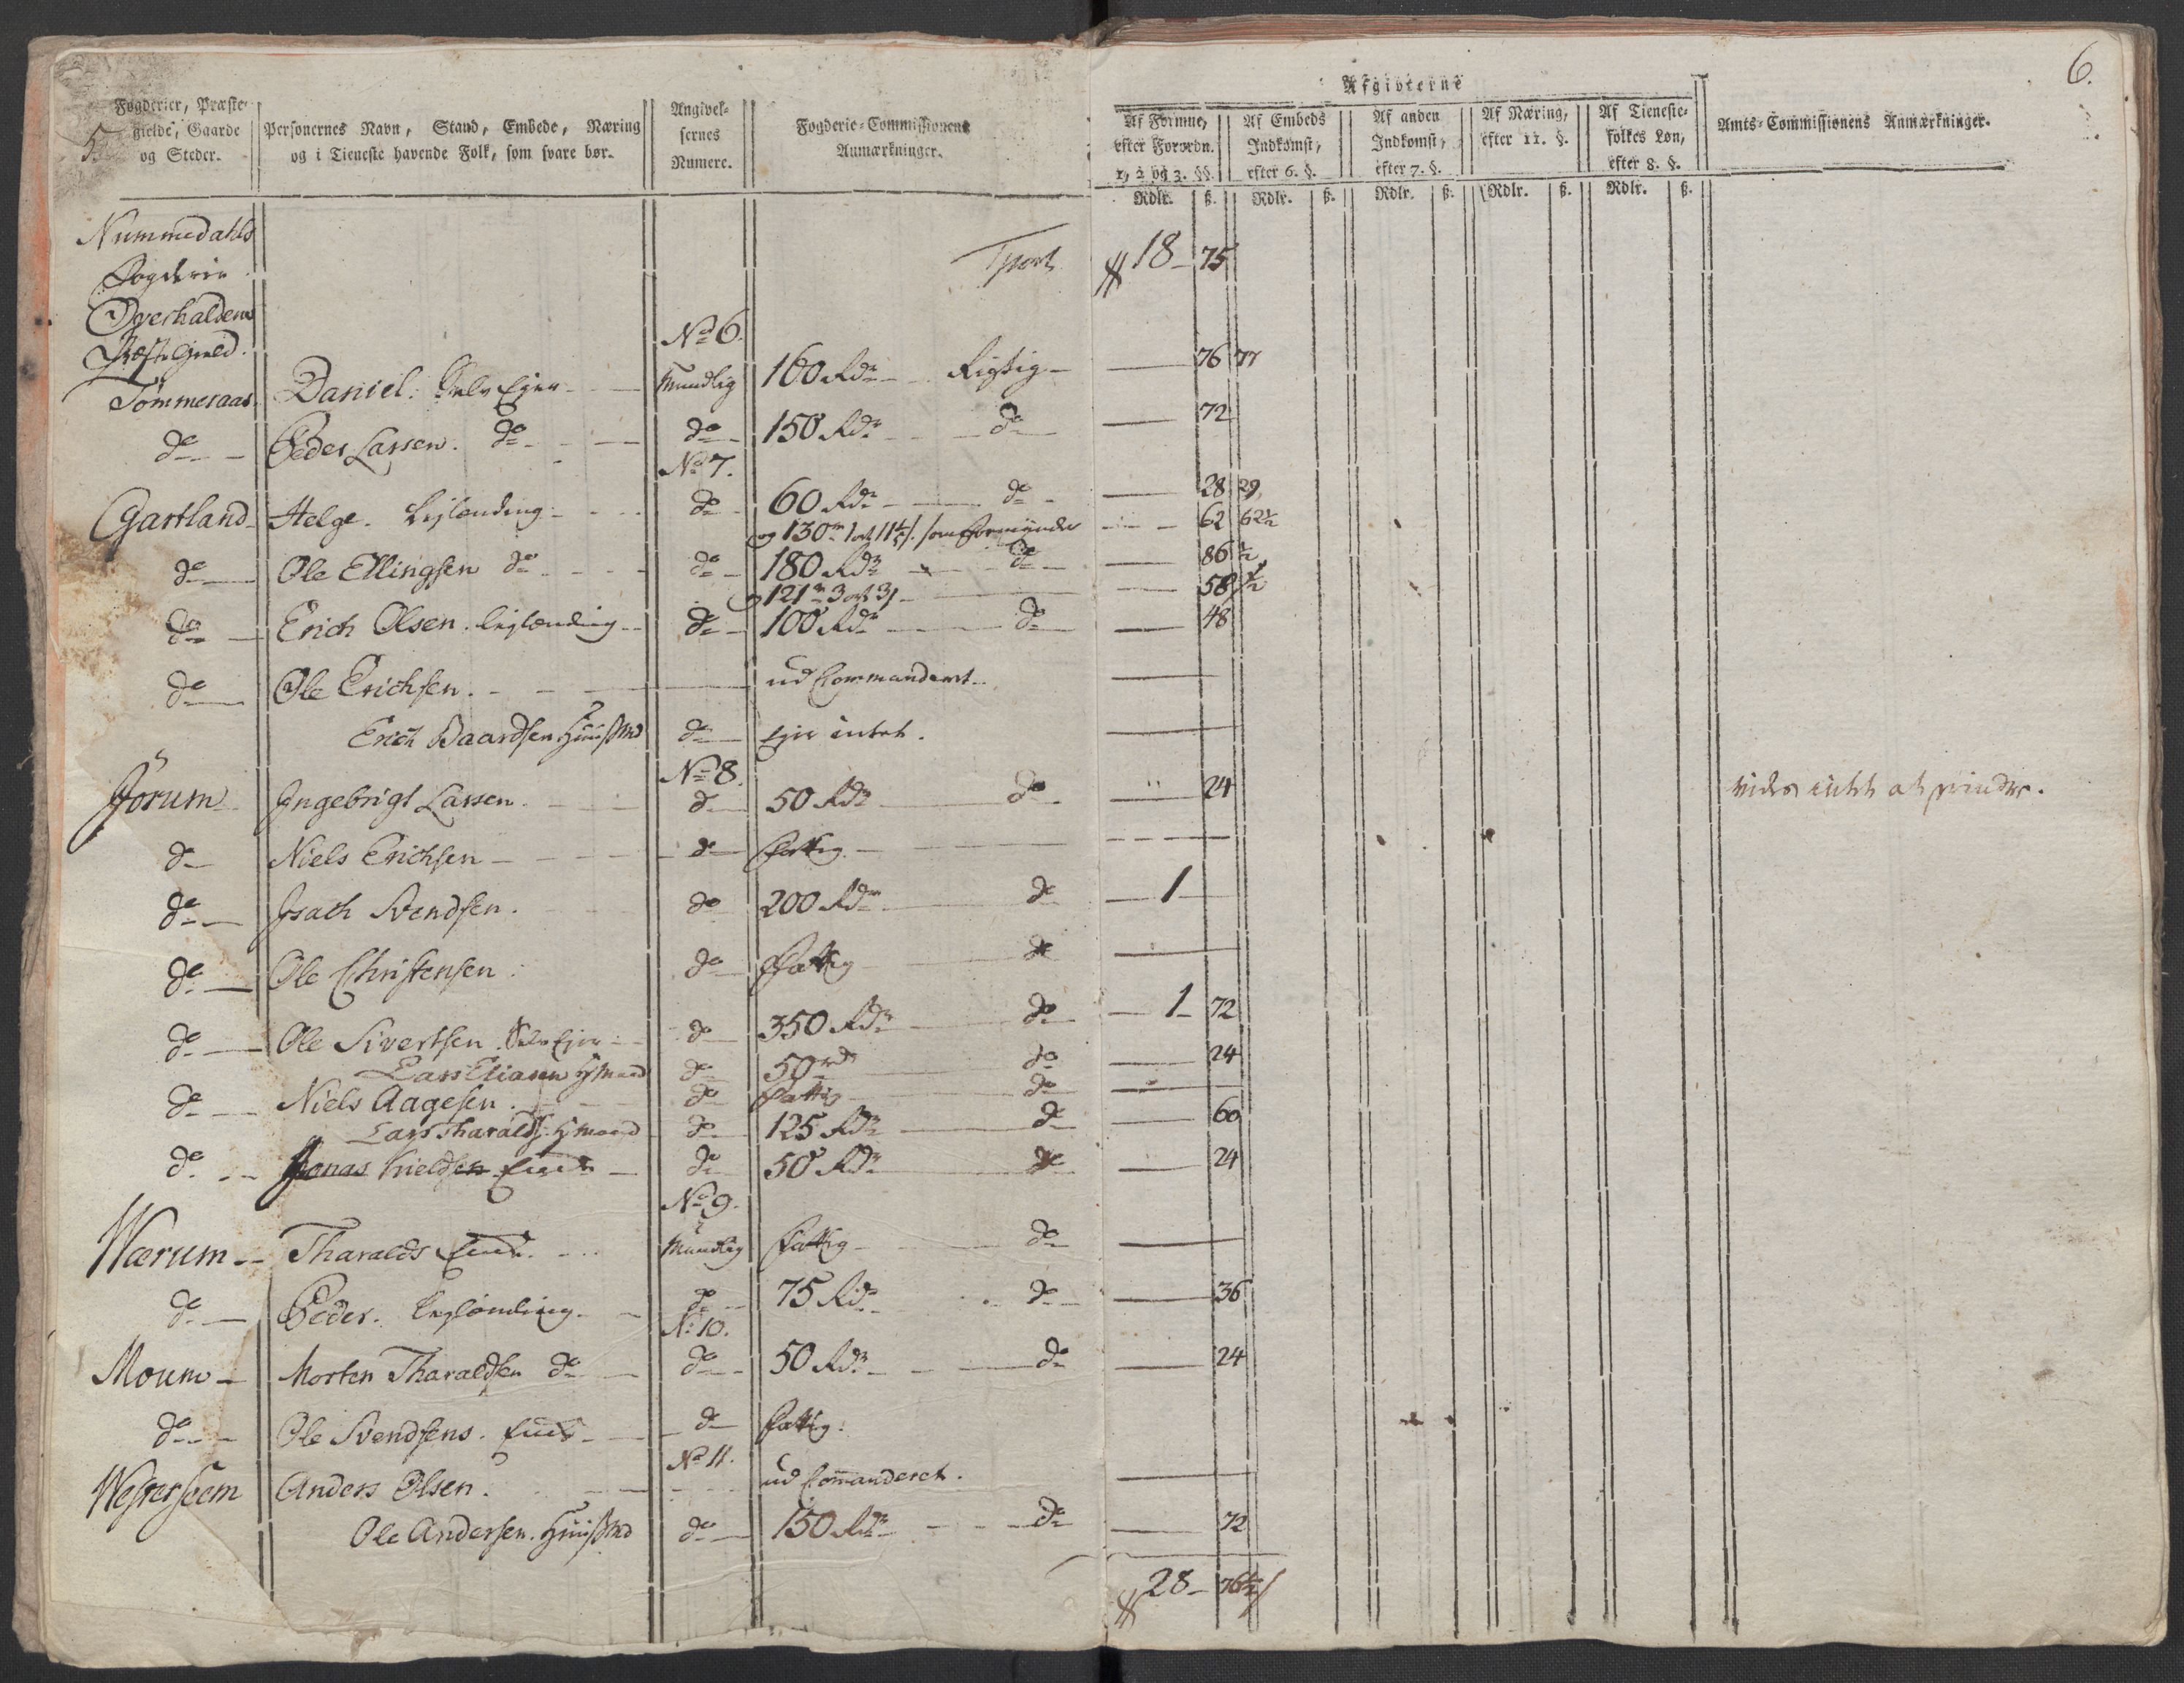 5.
Fogderier, Præste-
gielde, Gaarde
og Steder.
Personernes Navn, Stand, Embede, Næring
og i Tieneste havende Folk, som svare bør.
Angivel-
sernes
Numere.
Fogderie-Commissionens
Anmærkninger.
6.
Afgivterne
Af Formue,
efter Forordn.
1, 2 og 3. §§.
Af Embeds
Indkomst,
efter 6. §.
Af anden
Indkomst,
efter 7. §.
Af Næring,
efter 11. §.
Af Tieneste-
folkes Løn,
efter 8. §.
Amts-Commissionens Anmærkninger.
Rdlr. ß. Rdlr. ß. Rdlr. ß. Rdlr. ß. Rdlr. ß.
Nummedahls
Fogderie
Tport 18 - 75
Overhaldens
Præstegield.
No 6.
Tömmeraas Daniel. Selv Ejer - Mundlig 160 Rdr - Rigtig - 76 77
do - Peder Larsen. do - do - 150 Rdr - do - 72
No 7.
Gartland - Helge. Lejlending - do - 60 Rdr - do - 28 29
og 130 rd 1 ort 11 1/2 s. som Formynder - 62 62 1/2
do - Ole Ellingsen do - do - 180 Rdr - do - 86 1/2
og 121 rd 3 ort 3 s - 58 1/2
do - Erich Olsen. lejlending - do - 100 Rdr - do - 48
do - Ole Erichsen. - ud Commanderet -
Erich Baardsen Huusmd do - Ejer intet.
No 8.
Jörum - Ingebrigt Larsen. - do - 50 Rdr - do - 24
do - Niels Erichsen - do - Fattig. -
do - Isach Svendsen. do 200 Rdr - do - 1
do - Ole Christensen. do - Fattig - do
do - Ole Sivertsen. Selv Ejer - do - 350 Rdr - do - 1 - 72
Lars Eliasen Hmand do 50 rd - do - 24
do - Niels Aagesen. - do - Fattig - do -
Lars Tharalds. Hmand do - 125 Rdr - do - 60
do - Jonas Kieldsen Enke - do - 50 Rdr - do - 24
No 9.
Wærum - Tharalds Enke. - Mundlig Fattig - do -
do - Peder. Lejlending. - do - 75 Rdr - do - 36
No 10.
Moum - Morten Tharaldsen do - do - 50 Rdr - do - 24
do - Ole Svendsens. Enke - do - Fattig.
No 11.
Anders Olsen. - ud Commanderet.
Ole Andersen. Huusmd do - 150 Rdr - do - 72
28 - 76 1/2 s